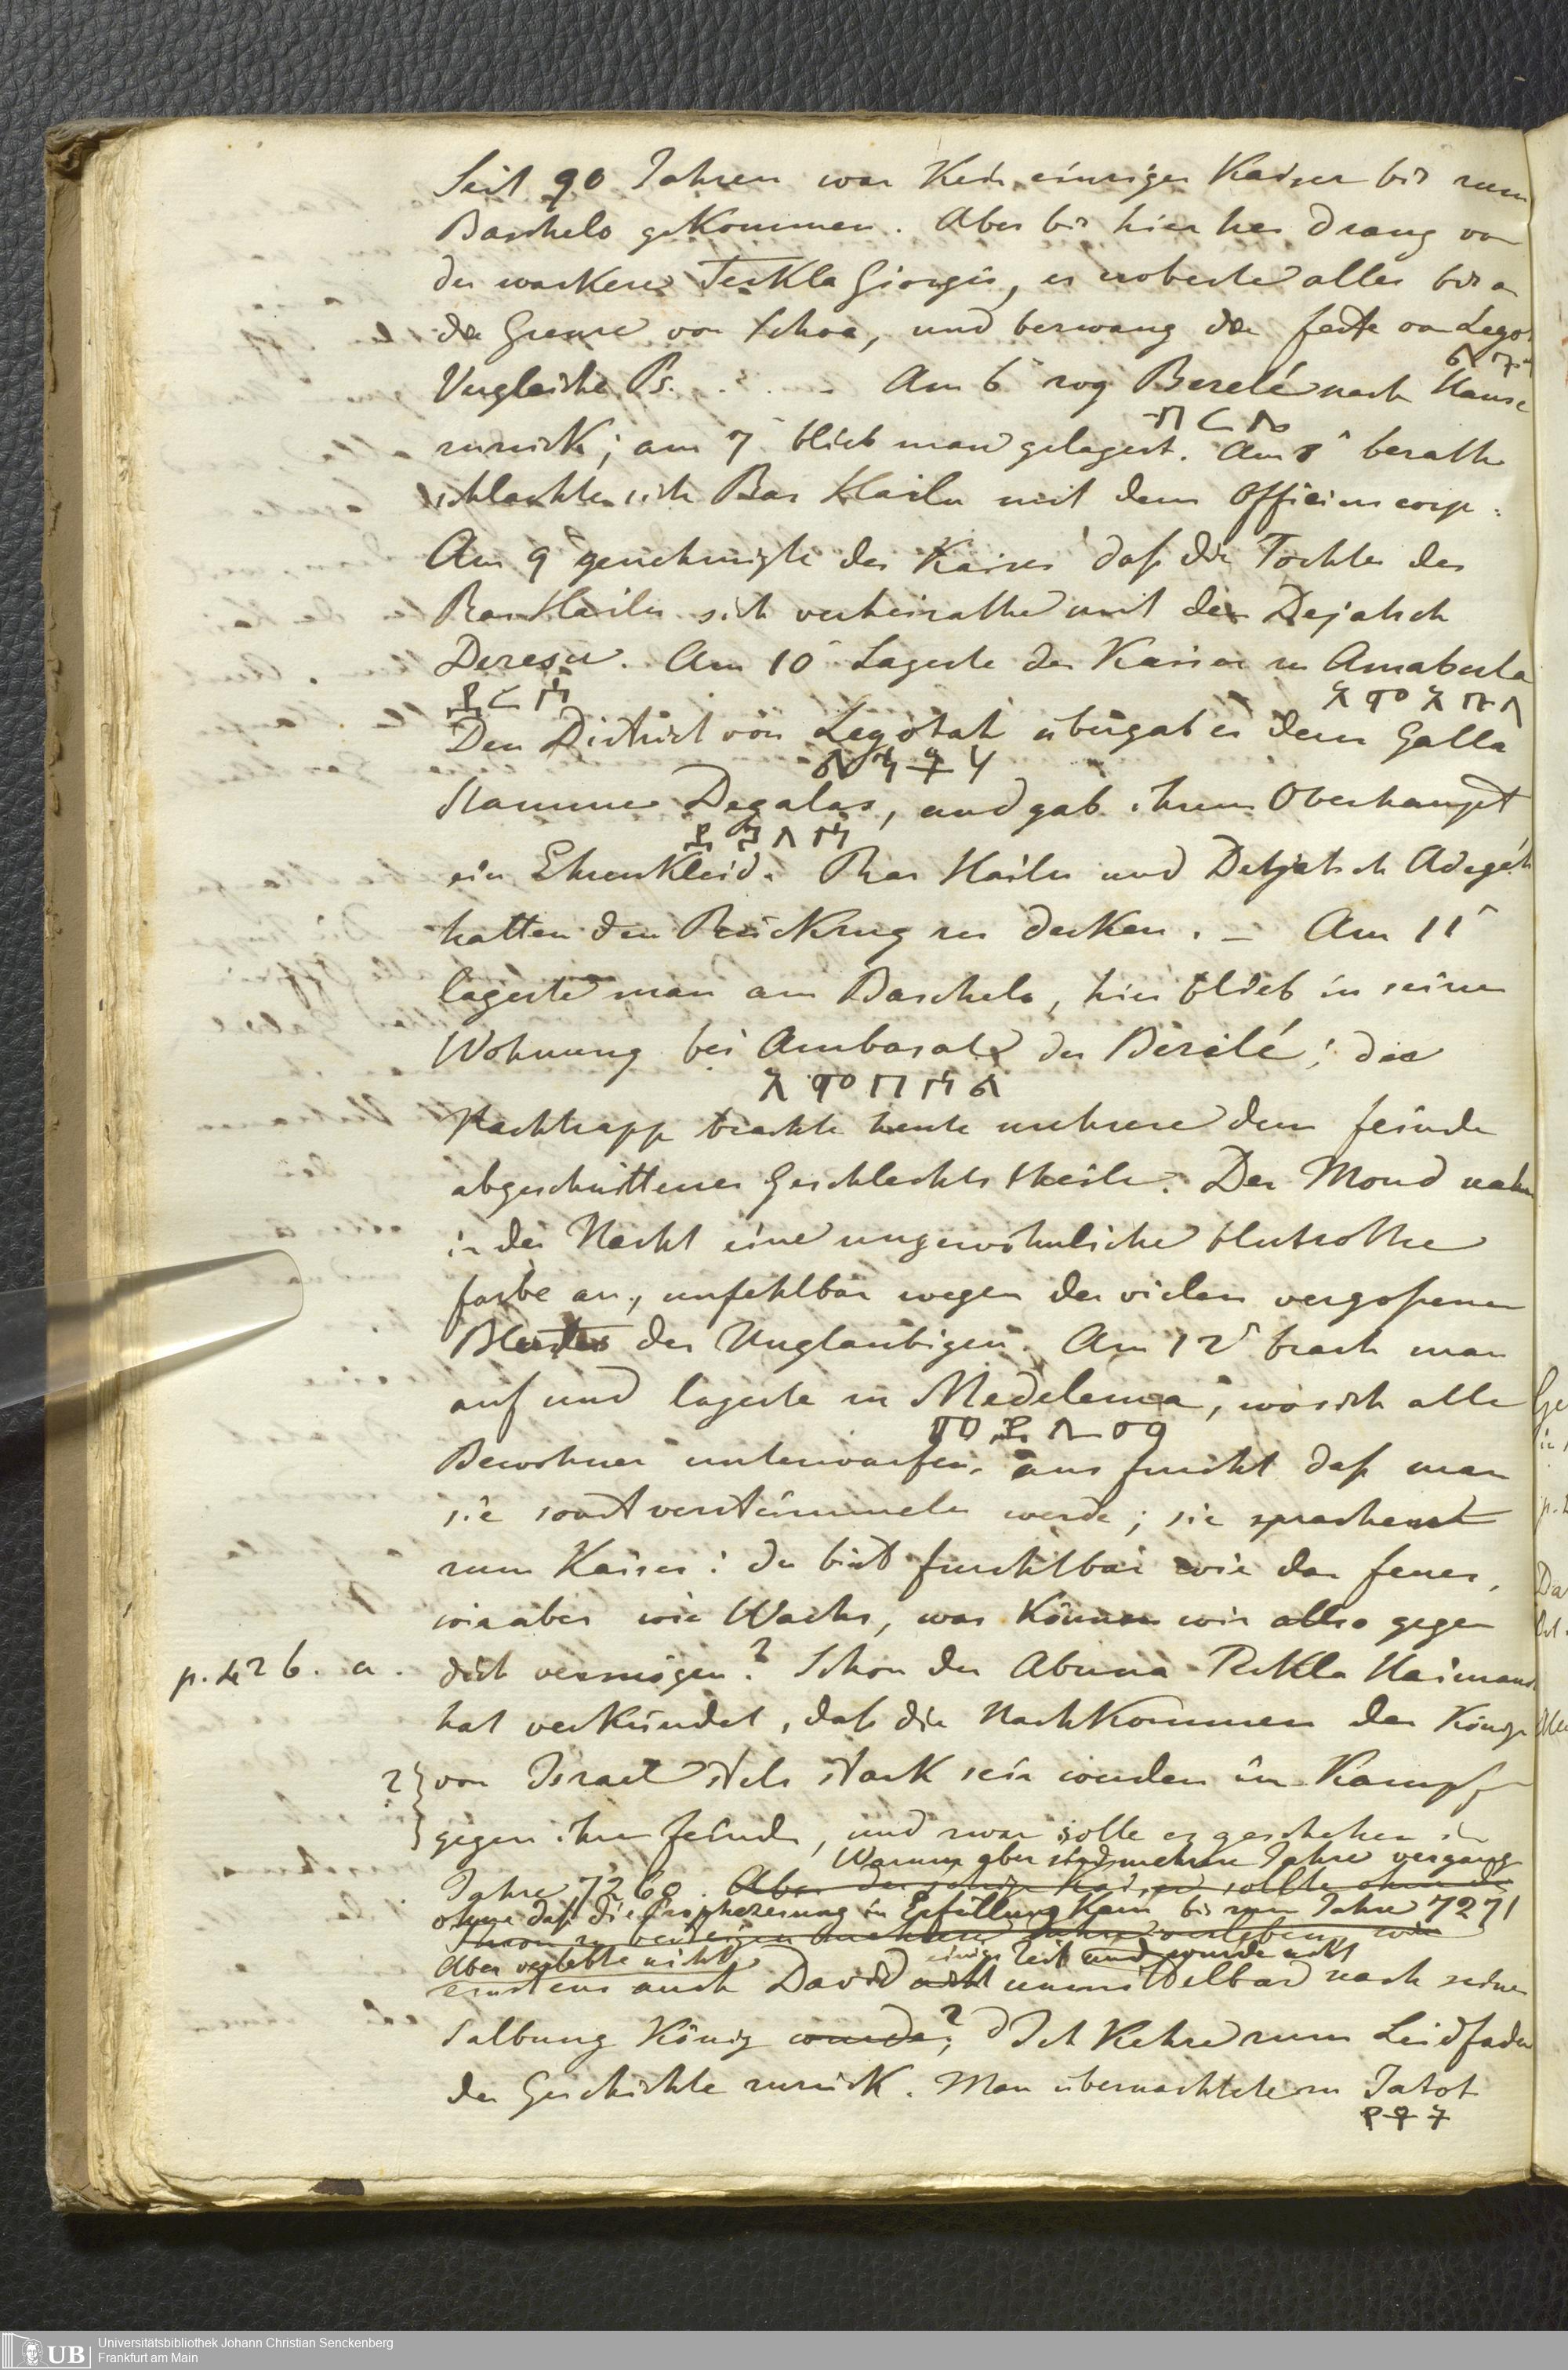 Seit 90 Jahren war Kein einziger Kaiser bis zum
Baschelo gekommen. Aber bis hier her drang vor
der wackere Teckla Giorgis, er eroberte alles bis an
die Grenze von Schoa, und bezwang die feste von Legot
Vergleiche Ps. . . . – Am 6ⁿ zog Berelé nach Hause
በሬሌ
zurück; am 7ⁿ blieb man gelagert. Am 8ⁿ berath
schlachte sich Ras Hailu mit dem Officierscorps.
Am 9ⁿ genehmigte der Kaiser daß die Tochter des
Ras Hailu sich verheirathe mit dem Dejatsch
Deresu. Am 10ⁿ Lagerte der Kaiser zu Amabesla
ደረሱ
Den District von Legotah übergab er dem Galla
Stamme Degalas, und gab ihrem Oberhaupt
ein Ehrenkleid. Ras Hailu und Detjatsch Adegeh
hatten den Rückzug zu decken. – Am 11ⁿ
lagerte man am Baschelo, hier blieb in seiner
Wohnung bei Ambasale der Berelé; die
አምባሳል
Nachtrapp brachte heute mehrere dem feinde
abgeschnittener Geschlechtstheile. Der Mond nahm
in der Nacht eine ungewöhnliche blutrothe
farbe an, unfehlbar wegen des vielen vergoßenen
Blutes der Unglaubigen. Am 12ⁿ brach man
auf und lagerte zu Medelema, wo sich alle
መደለማ
Bewohner unterwarfen, aus furcht daß man
sie sonst verstümmeln werde; sie sprachen
zum Kaiser: du bist furchtbar wie das feuer,
wir aber wie Wachs, was Können wir also gegen
p. 426. a. dich vermögen? Schon der Abuna Teckla Haimanot
hat verkündet, daß die Nachkommen der Könige
? von Israel stets stark sein werden im Kampf
gegen ihre feinde, und zwar solle es geschehen im
Warum aber sind mehrere Jahre vergang
Jahre 7260. Aber der jetzige Kaiser sollte ohne die
ohne daß die Prophezeiung in Erfüllung Kam bis zum Jahre 7271
Thron zu besteigen mehrere Jahre verleben, wie
Aber verlebte nicht einige Zeit und wurde nicht
erstens auch David nicht unmittelbar nach seiner
Salbung König wurde;? Ich Kehre zum Leidfaden
der Geschichte zurück. Man übernachtete zu Jatot